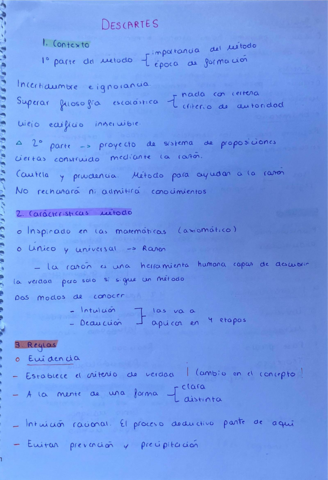 DESCARTES
1. Contexto
1ª parte del método - importancia del método
- época de formación
Incertidumbre e ignorancia
Superar filosofía escolástica - nada con certeza
- criterio de autoridad
viejo edificio inservible
2ª parte --> proyecto de sistema de proposiciones
ciertas construido mediante la razón.
Cautela y prudencia. Método para ayudar a la razón
No rechazará ni admitirá conocimientos
2. Características método
o Inspirado en las matemáticas (axiomático)
o Único y universal --> Razón
- la razón es una herramienta humana capaz de descubrir
la verdad pero solo si sigue un método
Dos modos de conocer
- Intuición
- Deducción
las va a
aplicar en 4 etapas
3. Reglas
o Evidencia
- Establece el criterio de verdad (cambio en el concepto)
- A la mente de una forma - clara
- distinta
- Intuición racional. El proceso deductivo parte de aquí
- Evitar prevención y precipitación